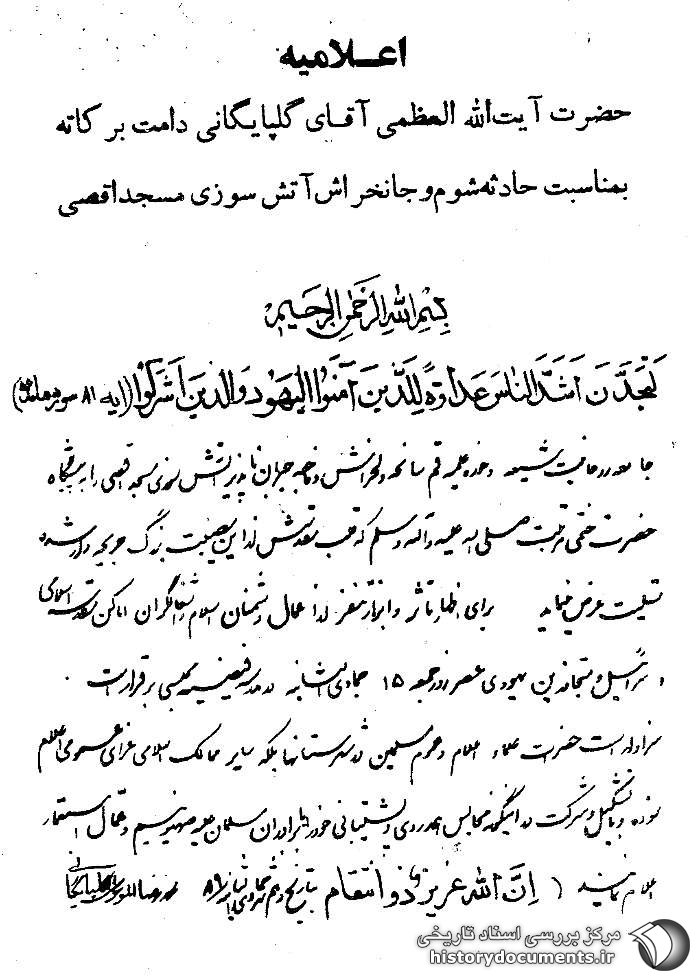 اعلامیه
حضرت آیت‌الله العظمی آقای گلپایگانی دامت برکاته
بمناسبت حادثه شوم و جانخراش آتش سوزی مسجد اقصی
بسم الله الرحمن الرحیم
لتجدن اشد الناس عداوة للذین آمنوا الیهود والذین اشرکوا (آیه ۸۱ سوره مائده)
جامعه روحانیت شیعه و حوزه علمیه قم سانحه دلخراش و ضایعه جبران ناپذیر آتش سوزی مسجد اقصی را به پیشگاه
حضرت ختمی مرتبت صلی الله علیه و آله و سلم که قلب مقدسش از این مصیبت بزرگ جریحه دار شده
تسلیت عرض مینماید برای اظهار تاثر و ابراز تنفر از اعمال دشمنان اسلام و اشغالگران اماکن مقدسه اسلامی
و اسرائیل و متجاوزین یهودی عصر روز جمعه ۱۵ جمادی الثانیه در مدرسه فیضیه مجلسی برقرار است .
سزاوار است حضرات علماء اعلام و عموم مسلمین در شهرستانها بلکه سایر ممالک اسلامی عزای عمومی اعلام
نموده و با تشکیل و شرکت در اینگونه مجالس همدردی و پشتیبانی خود را از برادران مسلمان علیه صهیونیسم و عمال استعمار
اعلام نمایند ( ان الله عزیز ذو انتقام بتاریخ دهم جمادی الثانیه ۸۹ محمد رضا الموسوی الگلپایگانی
مرکز بررسی اسناد تاریخی
historydocuments.ir